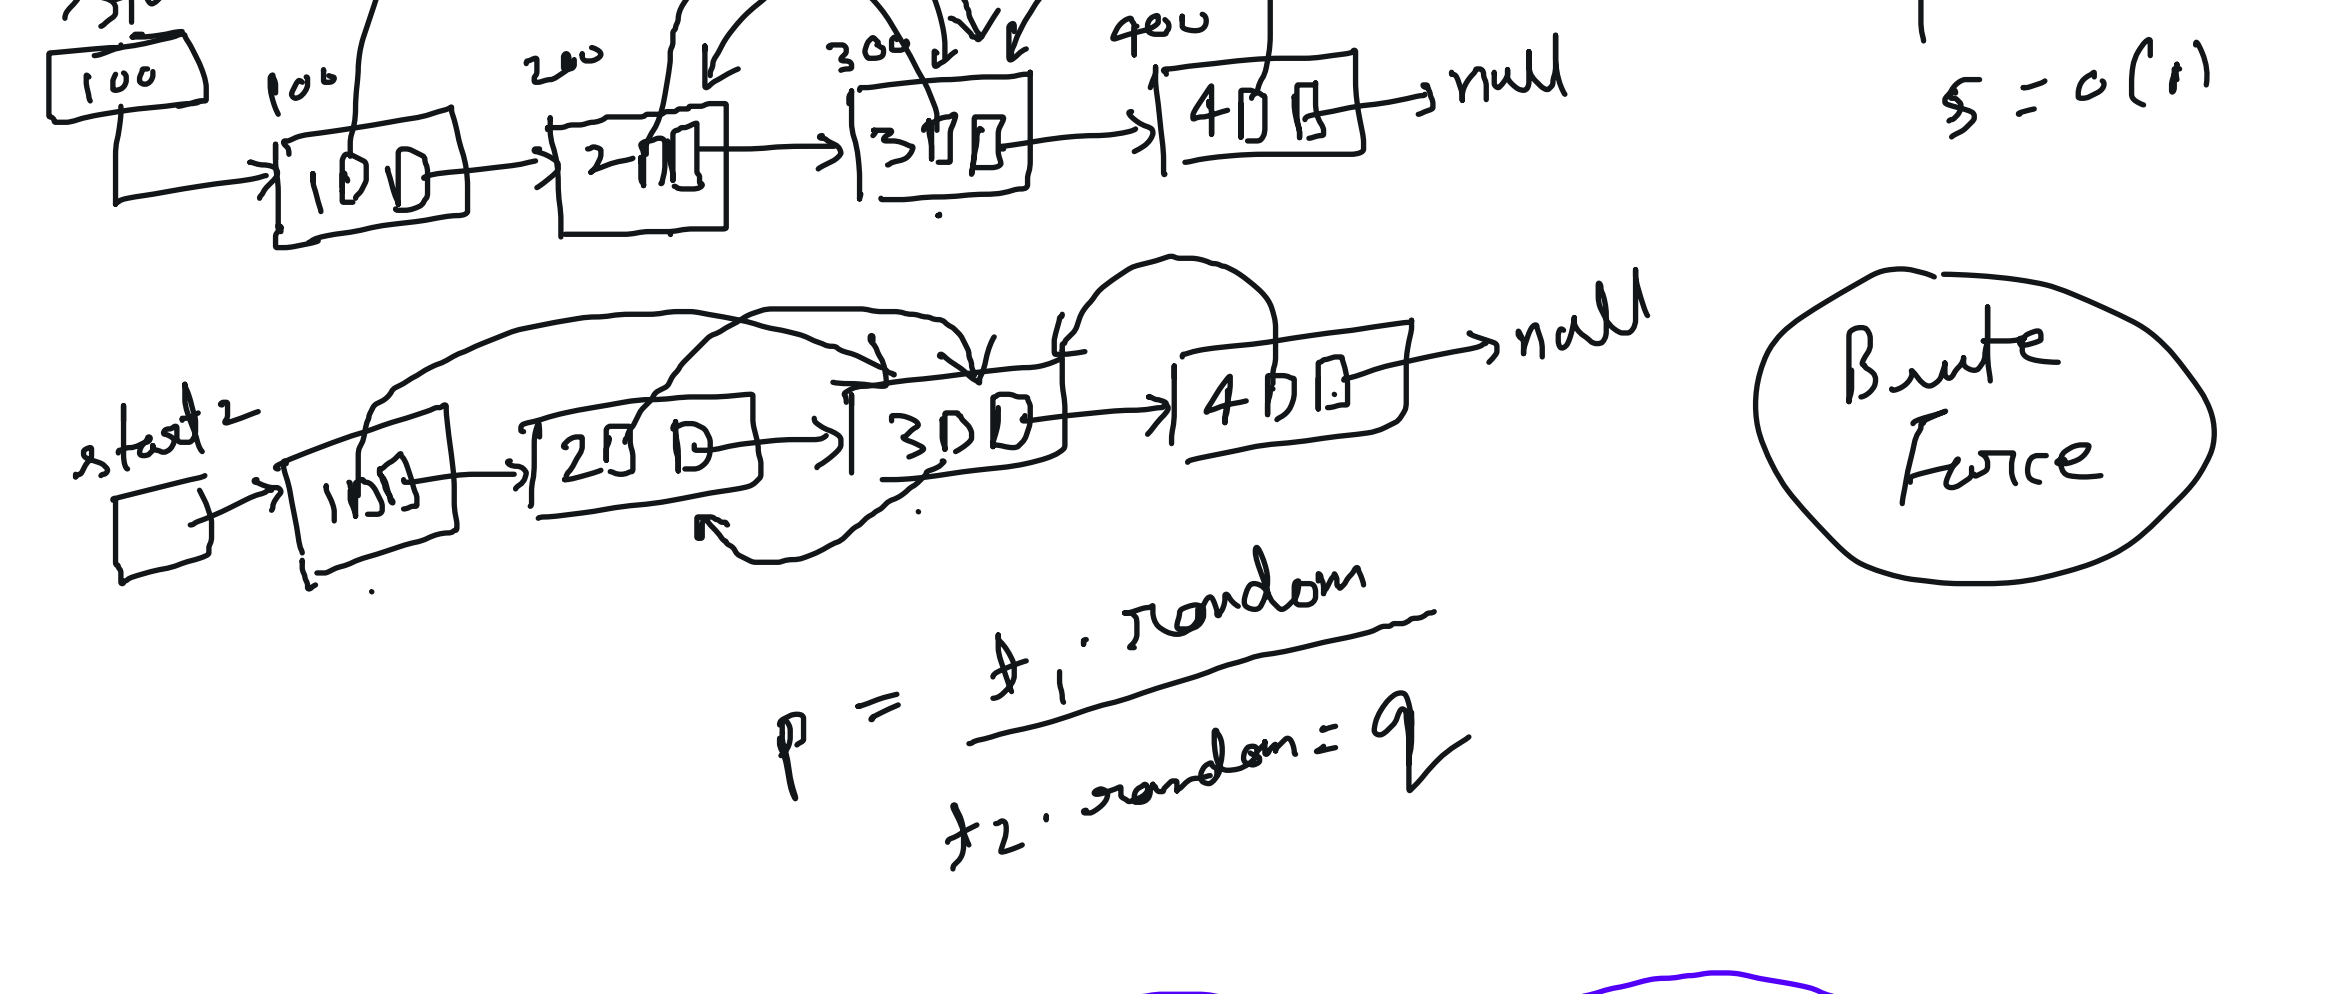 100
100
200
300
400
1
2
3
4
null
S = O(1)
start 2
1
2
3
4
null
Brute
Force
p = t1.random
t2.random = q